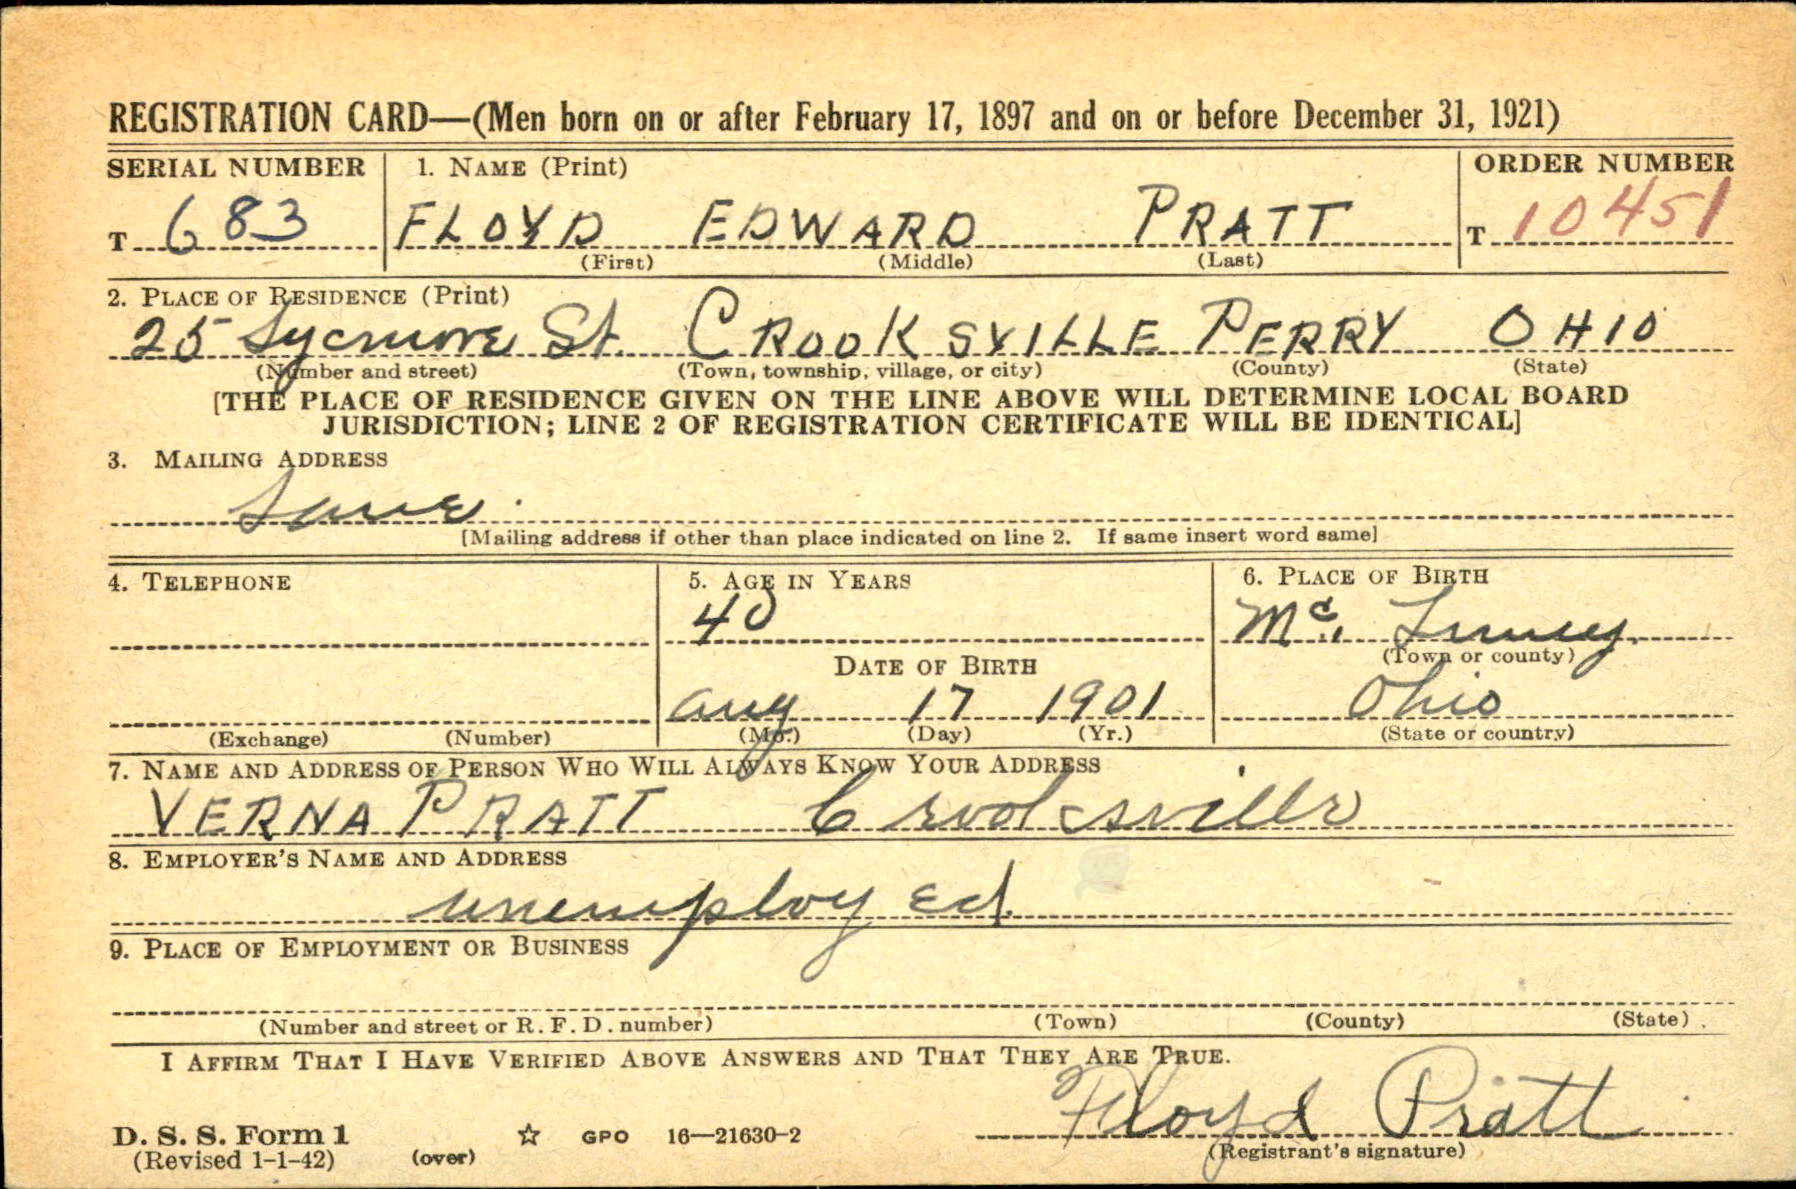 REGISTRATION CARD—(Men born on or after February 17, 1897 and on or before December 31, 1921)
SERIAL NUMBER 1. NAME (Print) ORDER NUMBER
T 683 FLOYD EDWARD PRATT T 10451
(First) (Middle) (Last)
2. PLACE OF RESIDENCE (Print)
25 Sycmore St. CROOKSVILLE PERRY OHIO
(Number and street) (Town, township, village, or city) (County) (State)
[THE PLACE OF RESIDENCE GIVEN ON THE LINE ABOVE WILL DETERMINE LOCAL BOARD
JURISDICTION; LINE 2 OF REGISTRATION CERTIFICATE WILL BE IDENTICAL]
3. MAILING ADDRESS
Same.
[Mailing address if other than place indicated on line 2. If same insert word same]
4. TELEPHONE 5. AGE IN YEARS 6. PLACE OF BIRTH
40 Mc.
DATE OF BIRTH (Town or county)
Aug 17 1901 Ohio
(Exchange) (Number) (Mo.) (Day) (Yr.) (State or country)
7. NAME AND ADDRESS OF PERSON WHO WILL ALWAYS KNOW YOUR ADDRESS
VERNA PRATT Crooksville
8. EMPLOYER'S NAME AND ADDRESS
unemployed.
9. PLACE OF EMPLOYMENT OR BUSINESS
(Number and street or R. F. D. number) (Town) (County) (State)
I AFFIRM THAT I HAVE VERIFIED ABOVE ANSWERS AND THAT THEY ARE TRUE.
Floyd Pratt
D. S. S. Form 1
(Revised 1-1-42) (over) ☆ GPO 16—21630-2 (Registrant's signature)